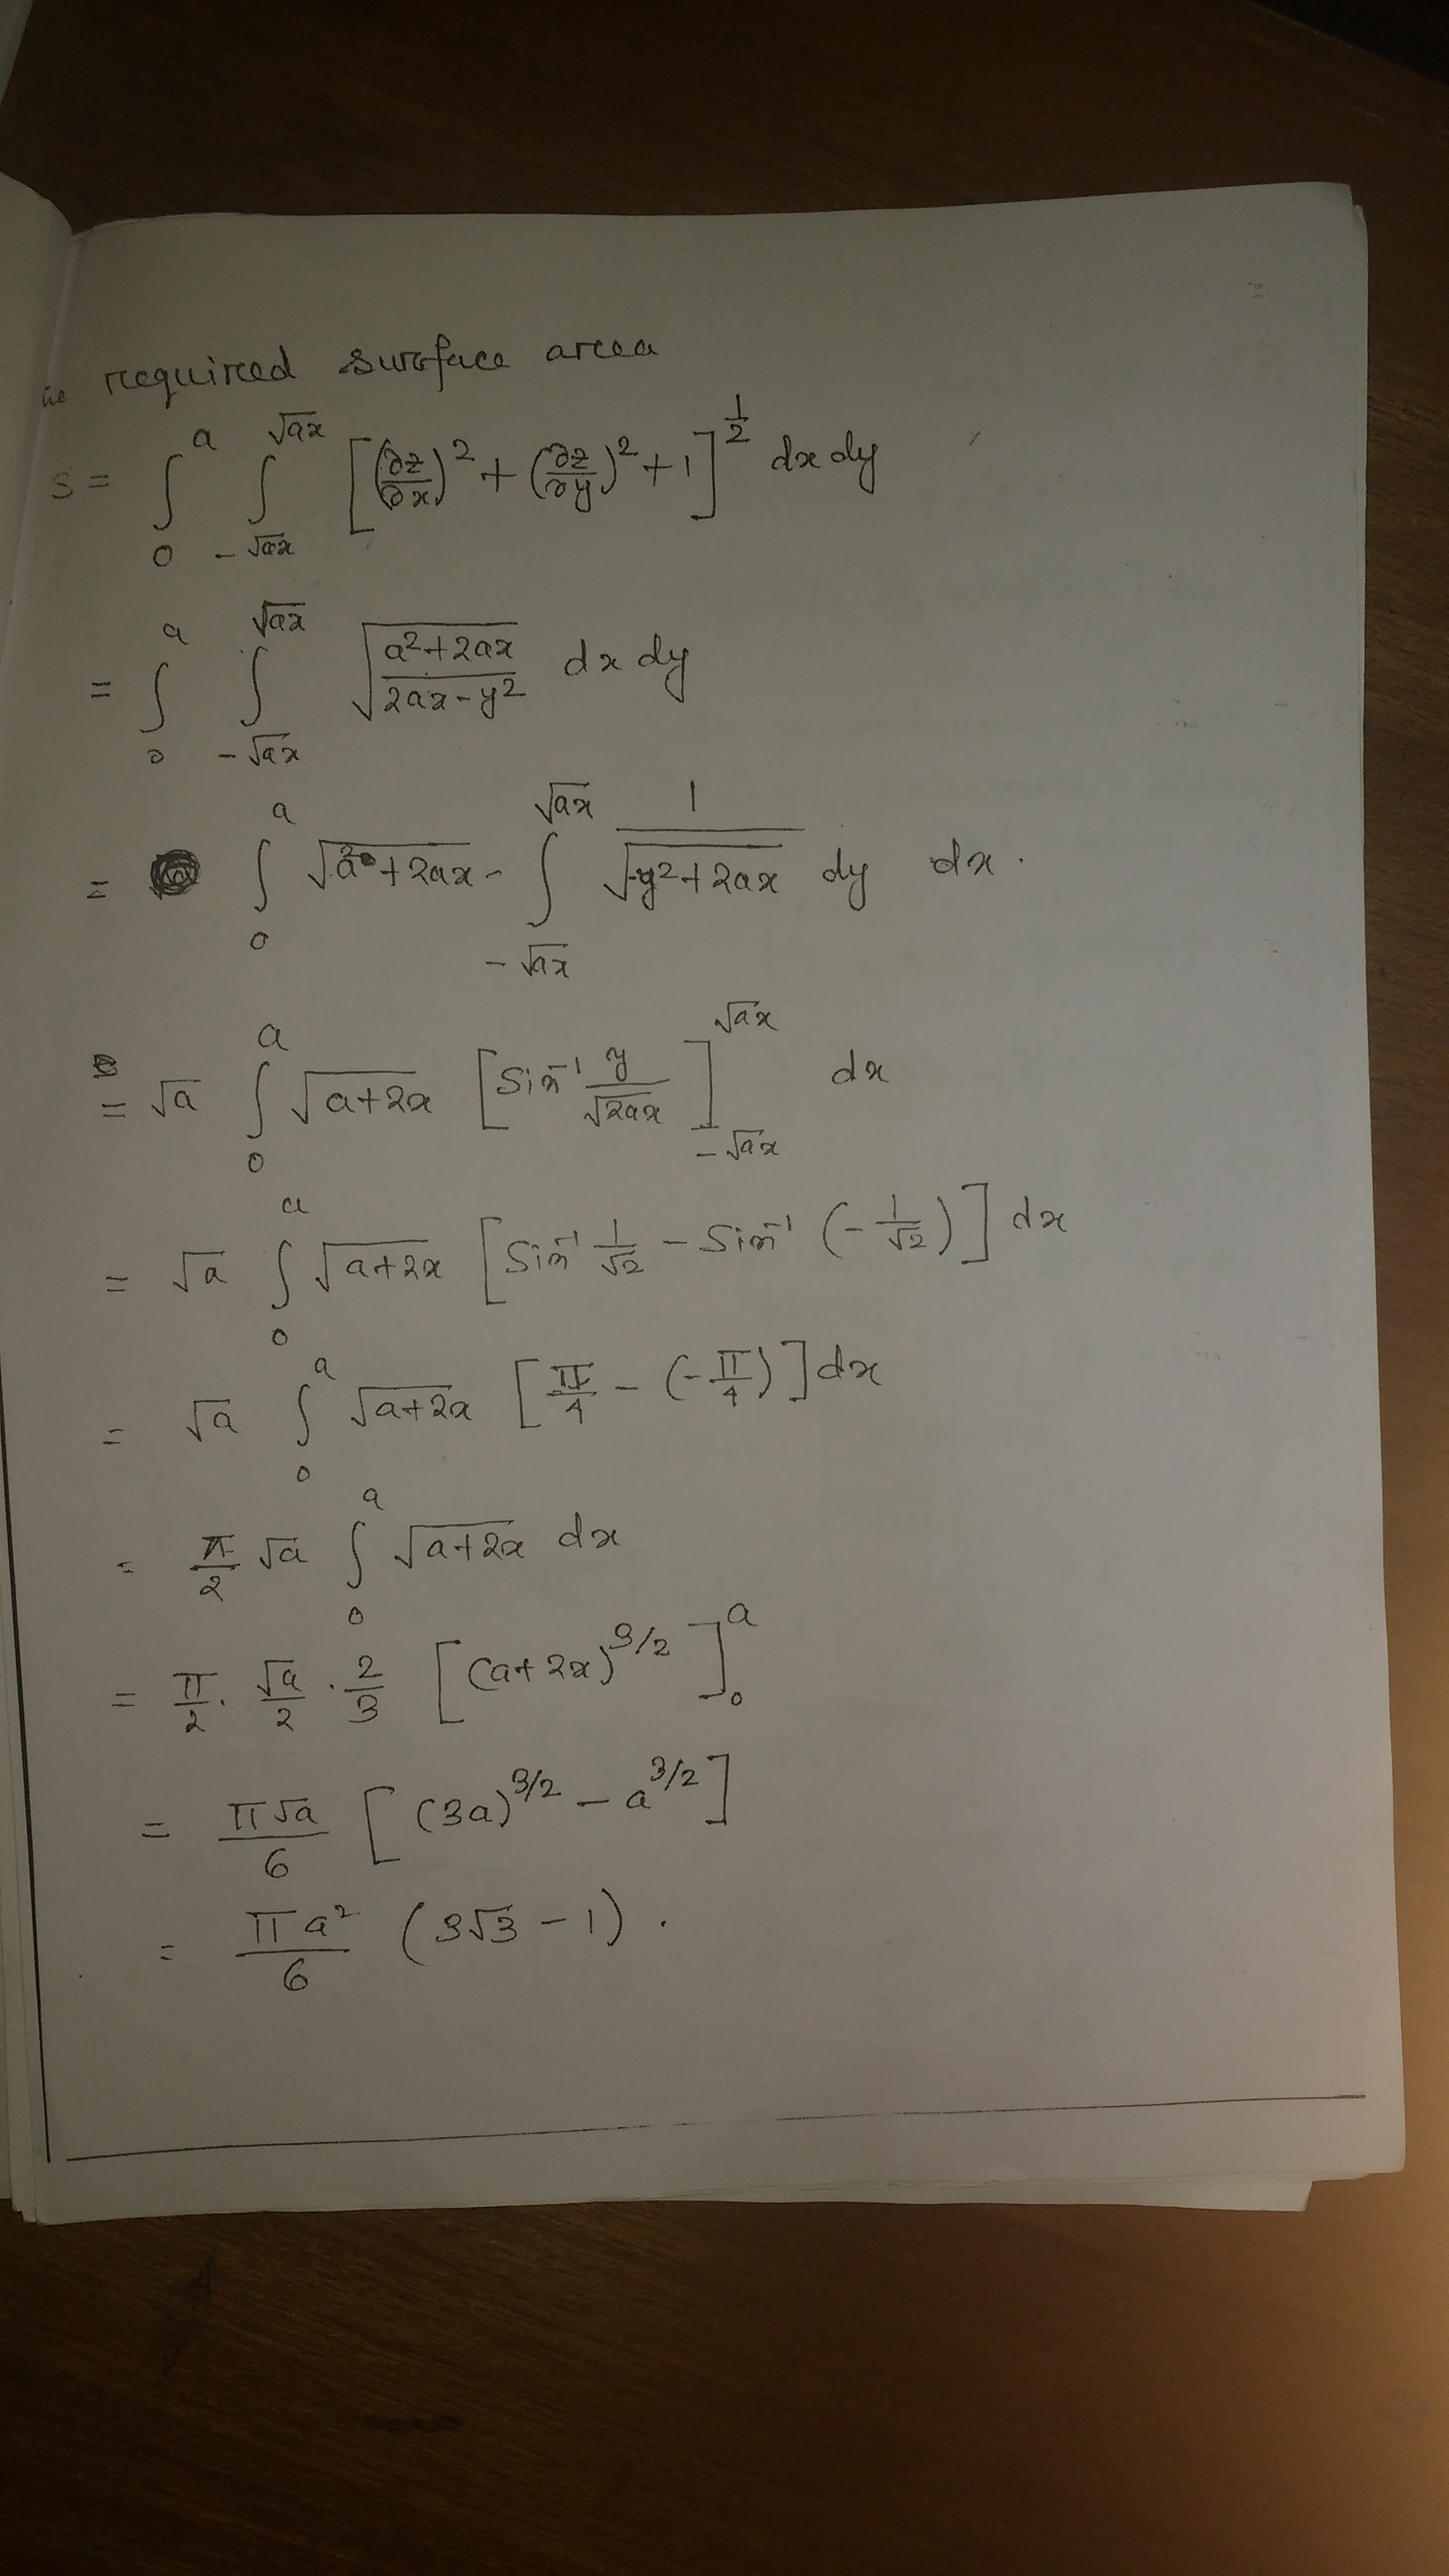 ie required surface area
S = ∫₀^a ∫_{-√ax}^{√ax} [(∂z/∂x)² + (∂z/∂y)² + 1]^{1/2} dx dy
= ∫₀^a ∫_{-√ax}^{√ax} √((a²+2ax)/(2ax-y²)) dx dy
= ∫₀^a √(a²+2ax) - ∫_{-√ax}^{√ax} 1/√(-y²+2ax) dy dx.
= √a ∫₀^a √(a+2x) [Sin⁻¹ y/√2ax]_{-√ax}^{√ax} dx
= √a ∫₀^a √(a+2x) [Sin⁻¹ 1/√2 - Sin⁻¹ (-1/√2)] dx
= √a ∫₀^a √(a+2x) [π/4 - (-π/4)] dx
= π/2 √a ∫₀^a √(a+2x) dx
= π/2 . √a/2 . 2/3 [(a+2x)^{3/2}]₀^a
= π√a/6 [(3a)^{3/2} - a^{3/2}]
= πa²/6 (3√3 - 1) .